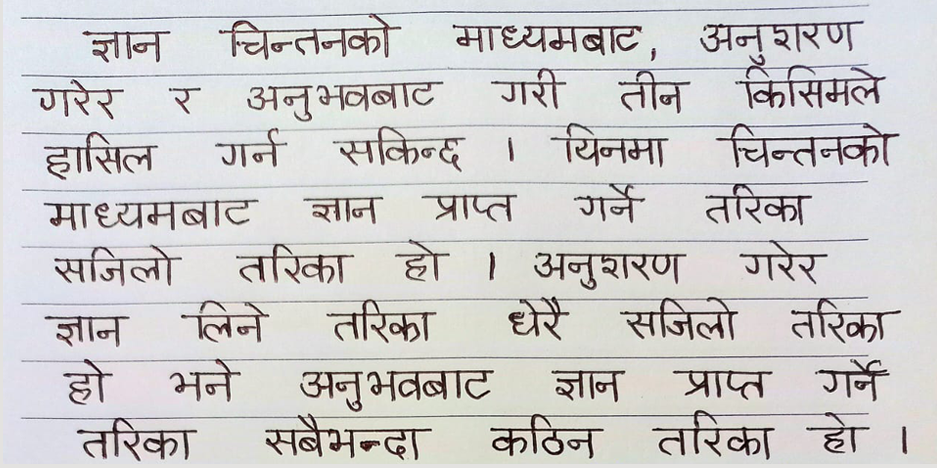 ज्ञान चिन्तनको माध्यमबाट, अनुशरण
गरेर र अनुभवबाट गरी तीन किसिमले
हासिल गर्न सकिन्द । यिनमा चिन्तनको
माध्यमबाट ज्ञान प्राप्त गर्ने तरिका
सजिलो तरिका हो । अनुशरण गरेर
ज्ञान लिने तरिका धेरै सजिलो तरिका
हो भने अनुभवबाट ज्ञान प्राप्त गर्ने
तरिका सबैभन्दा कठिन तरिका हो ।